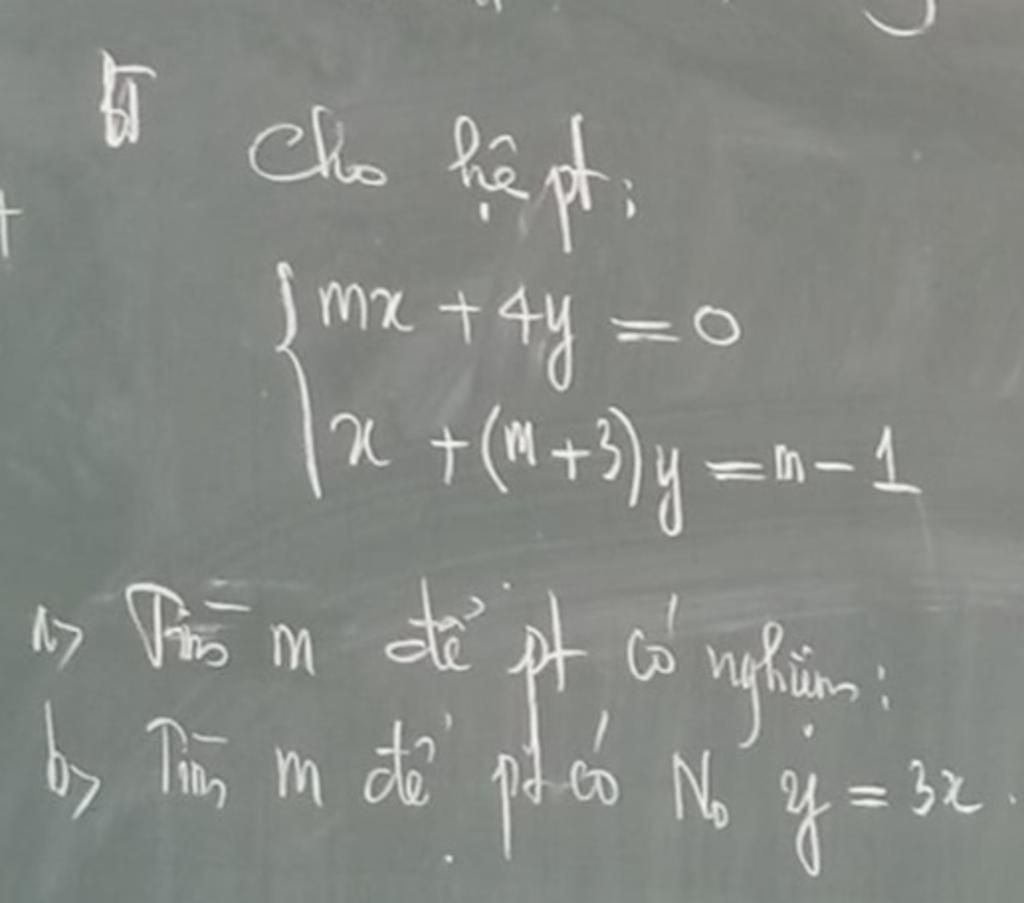 Cho hệ pt:
mx + 4y = 0
x + (m+3)y = m - 1
a> Tìm m để pt có nghiệm:
b> Tìm m để pt có No y = 3x.